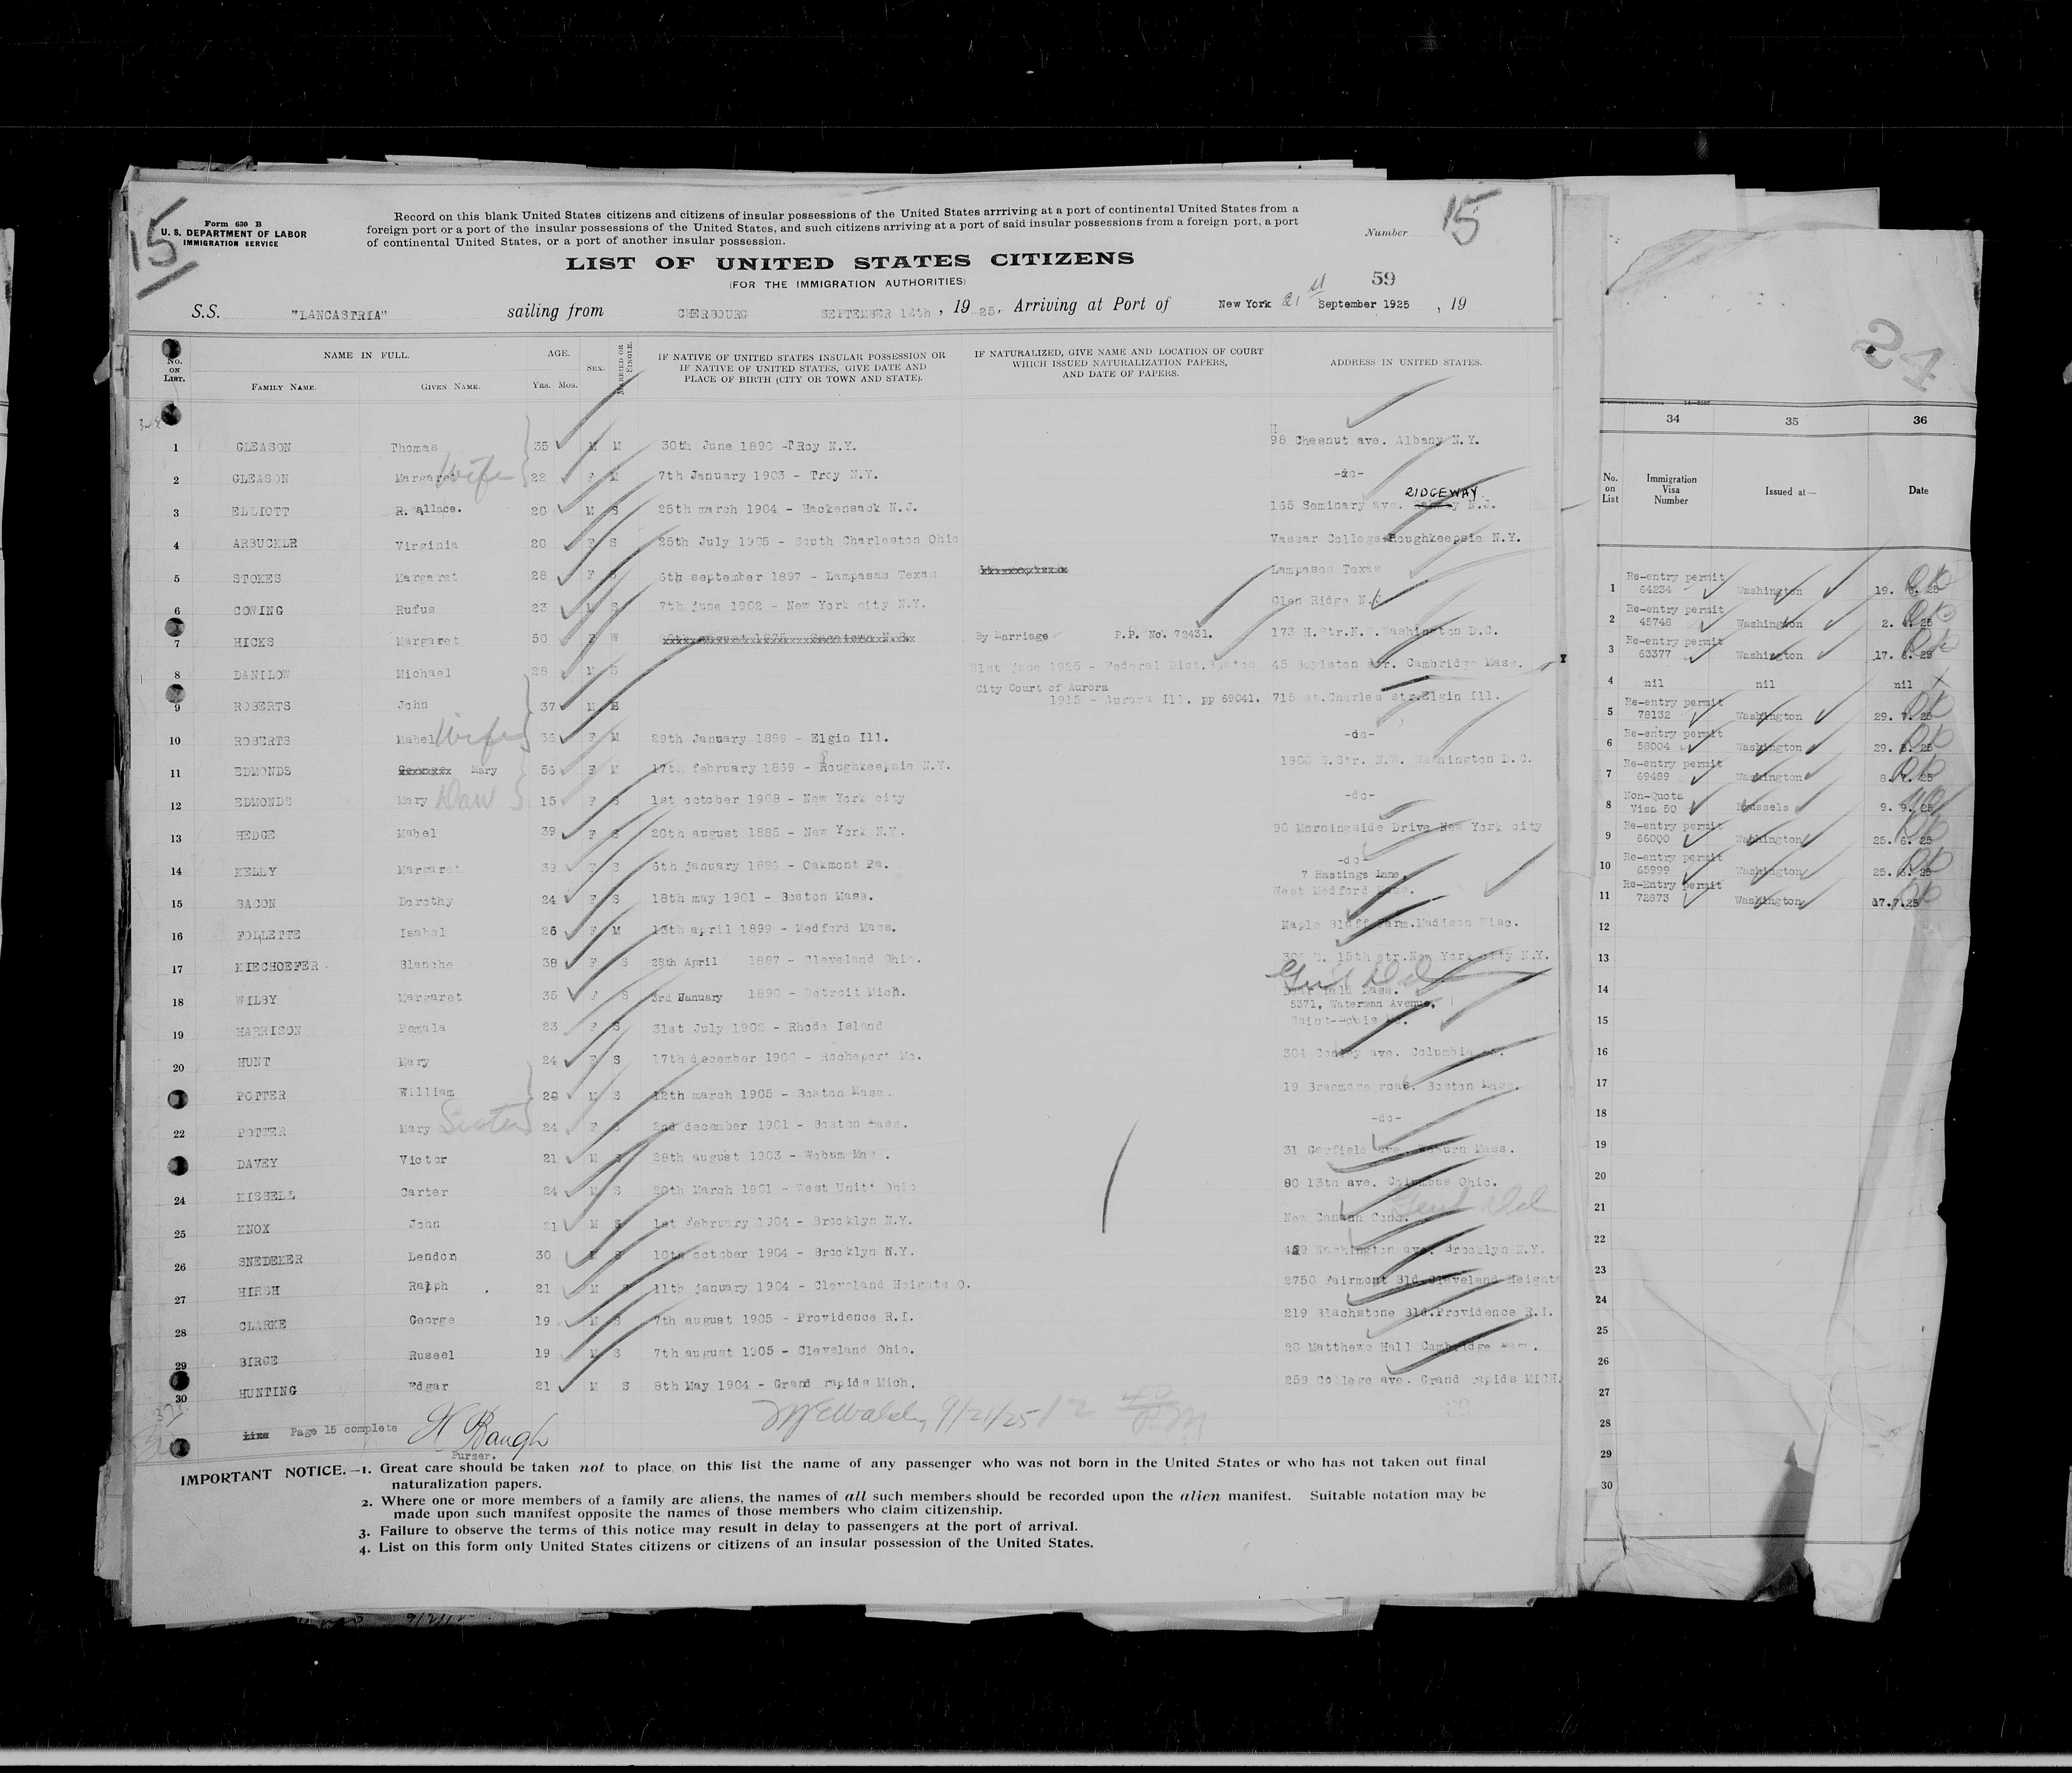 15
Form 630 B
U. S. DEPARTMENT OF LABOR
IMMIGRATION SERVICE
Record on this blank United States citizens and citizens of insular possessions of the United States arrriving at a port of continental United States from a
foreign port or a port of the insular possessions of the United States, and such citizens arriving at a port of said insular possessions from a foreign port, a port
of continental United States, or a port of another insular possession.
Number 15
LIST OF UNITED STATES CITIZENS
(FOR THE IMMIGRATION AUTHORITIES)
59
S.S. "LANCASTRIA" sailing from CHERBOURG SEPTEMBER 12th, 1925, Arriving at Port of New York 21st September 1925, 19
No. ON LIST. NAME IN FULL. AGE. SEX. MARRIED OR SINGLE. IF NATIVE OF UNITED STATES INSULAR POSSESSION OR IF NATIVE OF UNITED STATES, GIVE DATE AND PLACE OF BIRTH (CITY OR TOWN AND STATE). IF NATURALIZED, GIVE NAME AND LOCATION OF COURT WHICH ISSUED NATURALIZATION PAPERS, AND DATE OF PAPERS. ADDRESS IN UNITED STATES.
FAMILY NAME. GIVEN NAME. Yrs. Mos.
1 GLEASON Thomas 35 M M 30th June 1890 -TRoy N.Y. 98 Chesnut ave. Albany N.Y.
2 GLEASON Margaret Wife 22 F M 7th January 1903 - Troy N.Y. -do-
3 ELLIOTT R. Wallace. 20 M S 25th march 1904 - Hackensack N.J. 165 Seminary ave. RIDGEWAY N.J.
4 ARBUCKLE Virginia 20 F S 25th July 1905 - South Charleston Ohio Vassar College Poughkeepsie N.Y.
5 STOKES Margaret 28 F S 6th september 1897 - Lampasas Texas Lampasos Texas
6 COWING Rufus 23 M S 7th june 1902 - New York city N.Y. Glen Ridge N.J.
7 HICKS Margaret 50 F W By Marriage P.P. No. 72431. 173 H.Str.N.W.Washington D.C.
8 DANILOW Michael 28 M S 21st june 1925 - Federal Dist.Boston 45 Boylston Str. Cambridge Mass.
9 ROBERTS John 37 M City Court of Aurora 1915 - Aurora Ill. pp 69041. 715 st.Charles str.Elgin Ill.
10 ROBERTS Mabel Wife 36 F M 29th January 1889 - Elgin Ill. -do-
11 EDMONDS Mary 56 F M 17th february 1869 - Poughkeepsie N.Y. 1900 S.Str. N.W. Washington D.C.
12 EDMONDS Mary Dau 15 F S 1st october 1908 - New York city -do-
13 HEDGE Mabel 39 F S 20th august 1885 - New York N.Y. 90 Morningside Drive New York city
14 KELLY Margaret 39 F S 6th january 1886 - Oakmont Pa. -do-
15 BACON Dorothy 24 F S 18th may 1901 - Boston Mass. 7 Hastings Lane, West Medford Mass.
16 FOLLETTE Isabel 26 F M 13th april 1899 - Medford Mass. Maple Bluff Farm.Madison Wisc.
17 KIECHOEFER Blanche 38 F S 28th April 1887 - Cleveland Ohio. 15th str.New York city N.Y.
18 WILBY Margaret 35 F S 3rd January 1890 - Detroit Mich. Gen'l Del Mass.
19 HARRISON Pemala 23 F S 31st July 1902 - Rhode Island 5371, Waterman Avenue, Saint-Louis Mo.
20 HUNT Mary 24 F S 17th december 1900 - Rocheport Mo. 304 Conley ave. Columbia Mo.
POTTER William 20 M S 12th march 1905 - Boston Mass. 19 Braemore road. Boston Mass.
22 POTTER Mary Sister 24 F S 2nd december 1901 - Boston Mass. -do-
DAVEY Victor 21 M S 28th august 1903 - Woburn Mass. 31 Garfield ave. Woburn Mass.
24 KISSELL Carter 24 M S 20th March 1901 - West Unity Ohio 80 13th ave. Columbus Ohio.
25 KNOX John 21 M S 1st February 1904 - Brooklyn N.Y. New Canaan Conn. Gen'l Del
26 SNEDEKER Lendon 30 M S 10th october 1904 - Brooklyn N.Y. 459 Washington ave. Brooklyn N.Y.
27 HIRSH Ralph 21 M S 11th january 1904 - Cleveland Heights O. 2750 Fairmont Bld.Cleveland Heights
28 CLARKE George 19 M S 7th august 1905 - Providence R.I. 219 Blachstone Bld.Providence R.I.
29 BIRGE Russel 19 M S 7th august 1905 - Cleveland Ohio. 20 Matthews Hall Cambridge Mass.
30 HUNTING Edgar 21 M S 8th May 1904 - Grand rapids Mich. 259 College ave. Grand rapids MICH.
Page 15 complete
Purser.
9/21/25
IMPORTANT NOTICE.—1. Great care should be taken not to place on this list the name of any passenger who was not born in the United States or who has not taken out final
naturalization papers.
2. Where one or more members of a family are aliens, the names of all such members should be recorded upon the alien manifest. Suitable notation may be
made upon such manifest opposite the names of those members who claim citizenship.
3. Failure to observe the terms of this notice may result in delay to passengers at the port of arrival.
4. List on this form only United States citizens or citizens of an insular possession of the United States.
24
34 35 36
No. on List Immigration Visa Number Issued at— Date
1 Re-entry permit 64234 Washington 19. 6. 25
2 Re-entry permit 45748 Washington 2. 4. 25
3 Re-entry permit 63377 Washington 17. 6. 25
4 nil nil nil
5 Re-entry permit 78132 Washington 29. 7. 25
6 Re-entry permit 58004 Washington 29. 5. 25
7 Re-entry permit 69489 Washington 8. 7. 25
8 Non-Quota Visa 50 Brussels 9. 9. 25
9 Re-entry permit 66000 Washington 25. 6. 25
10 Re-entry permit 65999 Washington 25. 6. 25
11 Re-Entry permit 72873 Washington 17.7.25
12
13
14
15
16
17
18
19
20
21
22
23
24
25
26
27
28
29
30